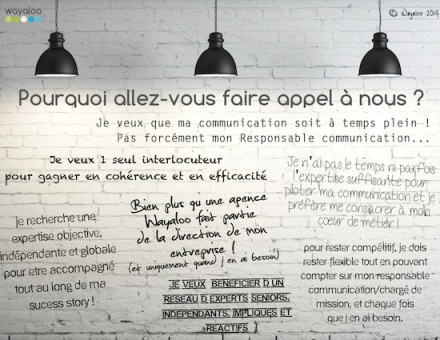 wayaloo
© Wayaloo 2014
Pourquoi allez-vous faire appel à nous ?
Je veux que ma communication soit à temps plein !
Pas forcément mon Responsable communication...
Je veux 1 seul interlocuteur
pour gagner en cohérence et en efficacité
Je n'ai pas le temps ni parfois
l'expertise suffisante pour
piloter ma communication et je
préfère me consacrer à mon
cœur de métier !
Bien plus qu'une agence
Wayaloo fait partie
de la direction de mon
entreprise !
(et uniquement quand j'en ai besoin)
je recherche une
expertise objective,
indépendante et globale
pour etre accompagné
tout au long de ma
sucess story !
pour rester compétitif, je dois
rester flexible tout en pouvant
compter sur mon responsable
communication/chargé de
mission, et chaque fois
que j'en ai besoin.
JE VEUX BENEFICIER D UN
RESEAU D EXPERTS SENIORS,
INDEPENDANTS, IMPLIQUES ET
REACTIFS !